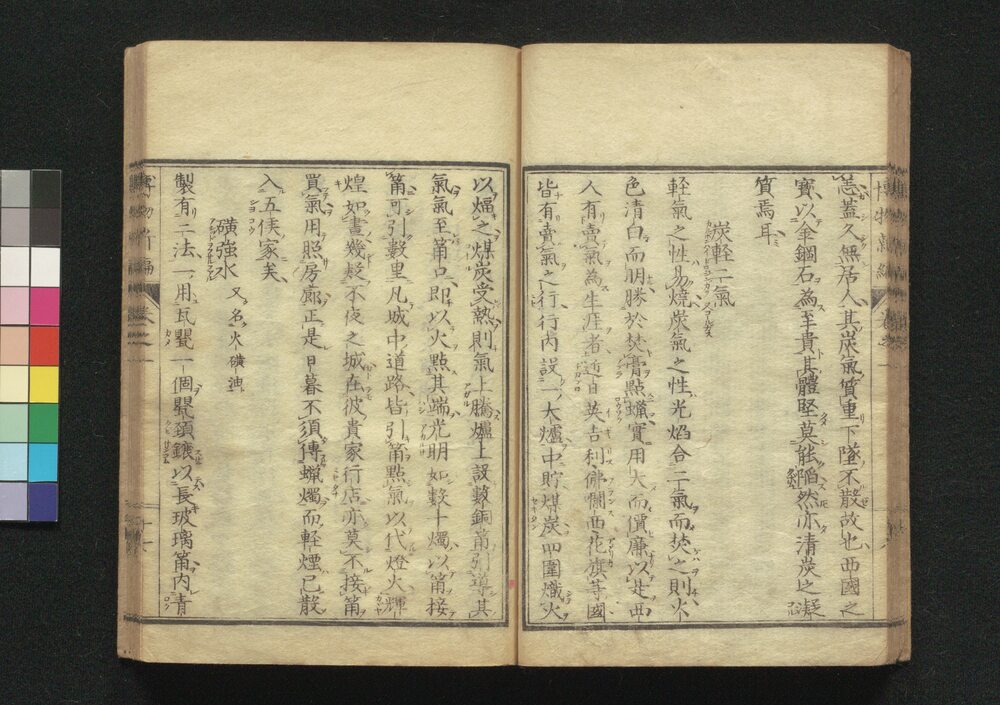 恙蓋久無居人其炭氣質重下墜不散故也西國之
寶以金鋼石為至貴其體堅莫能陷然亦清炭之凝
質焉耳
炭輕二氣
輕氣之性易燒炭氣之性光焰合二氣而焚之則火
色清白而明勝於焚膏點蠟實用大而價廉以是西
人有賣氣為生涯者近日英吉利佛蘭西花旗等國
皆有賣氣之行行內設一大爐中貯煤炭四圍熾火
以煏之煤炭受熱則氣上騰爐上設數銅筩引導其
氣氣至筩口即以火點其端光明如數十燭以筩接
筩可引數里凡城中道路皆引筩點氣以代燈火輝
煌如晝幾疑不夜之城在彼貴家行店亦莫不接筩
買氣用照房廊正是日暮不須傳蠟燭而輕煙已散
入五侯家矣
磺強水 又名火磺油
製有二法一用瓦甖一個甖頸鑲以長玻璃筩內青